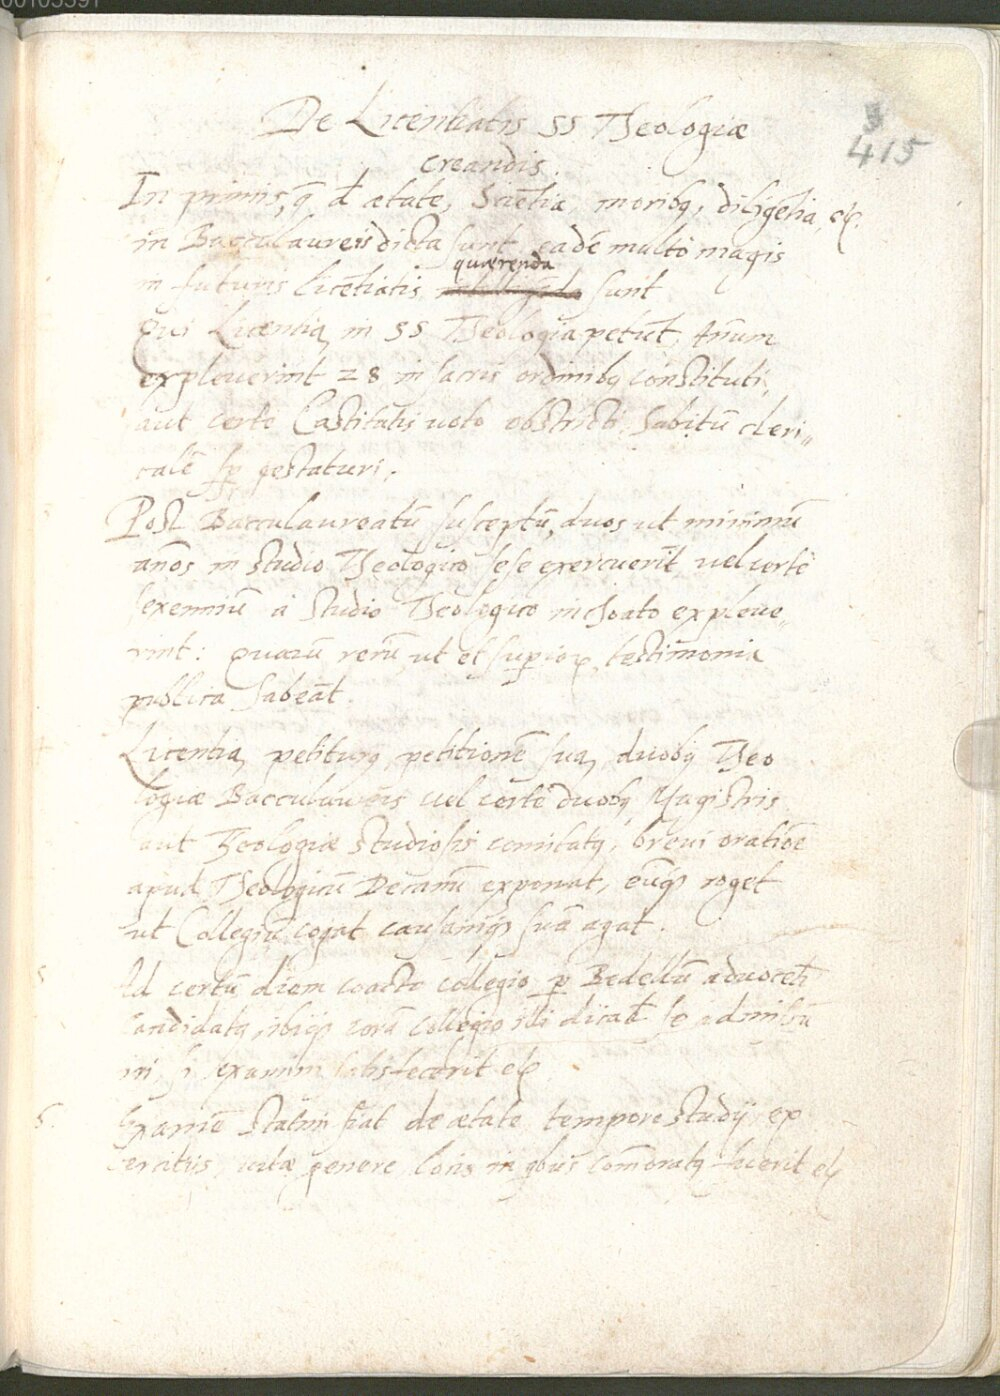 00105391
De Licentiatis SS Theologiæ
415
creandis.
In primis, q̃ d ætate, Sciẽtia, moribq, diligẽtia, etc.
in Bacculaureis dicta sunt, eadẽ multo magis
quærenda
in futuris licẽtiatis sunt
Qui Licentiã in SS Theologia petũt, Annum
expleuerint 28 in sacris ordinibq constituti,
aut certe Castitatis uoto obstricti, habitũ cleri„
calẽ sp gestaturi.
Post Bacculaureatũ susceptũ, duos ut minimũ
anõs in studio Theologico sese exercuerĩt uel certè
sexenniũ à studio Theologico inchoato expleue„
rint: Quarũ rerũ, ut et superiorũ, testimonia
publica habeãt.
Licentiã petiturq, petitionẽ suã, duobq Theo
logiæ Bacculaureis uel certè duobq Magistris
aut Theologiæ studiosis comitatq, breui oratiõe
apud Theologicũ Decanũ exponat, eũq roget
ut Collegiũ cogat causamq suã agat.
5 Ad certũ diem coacto collegio p Bedellũ aduocet̃
Candidatq, ibiq corã collegio illi dicat̃ se admissũ
iri, si examini satisfecerit etc.
5. Examẽ statim fiat de ætate tempore studij, ex
ercitiis, uitæ genere, locis in qbus cõmoratq fuerit etc